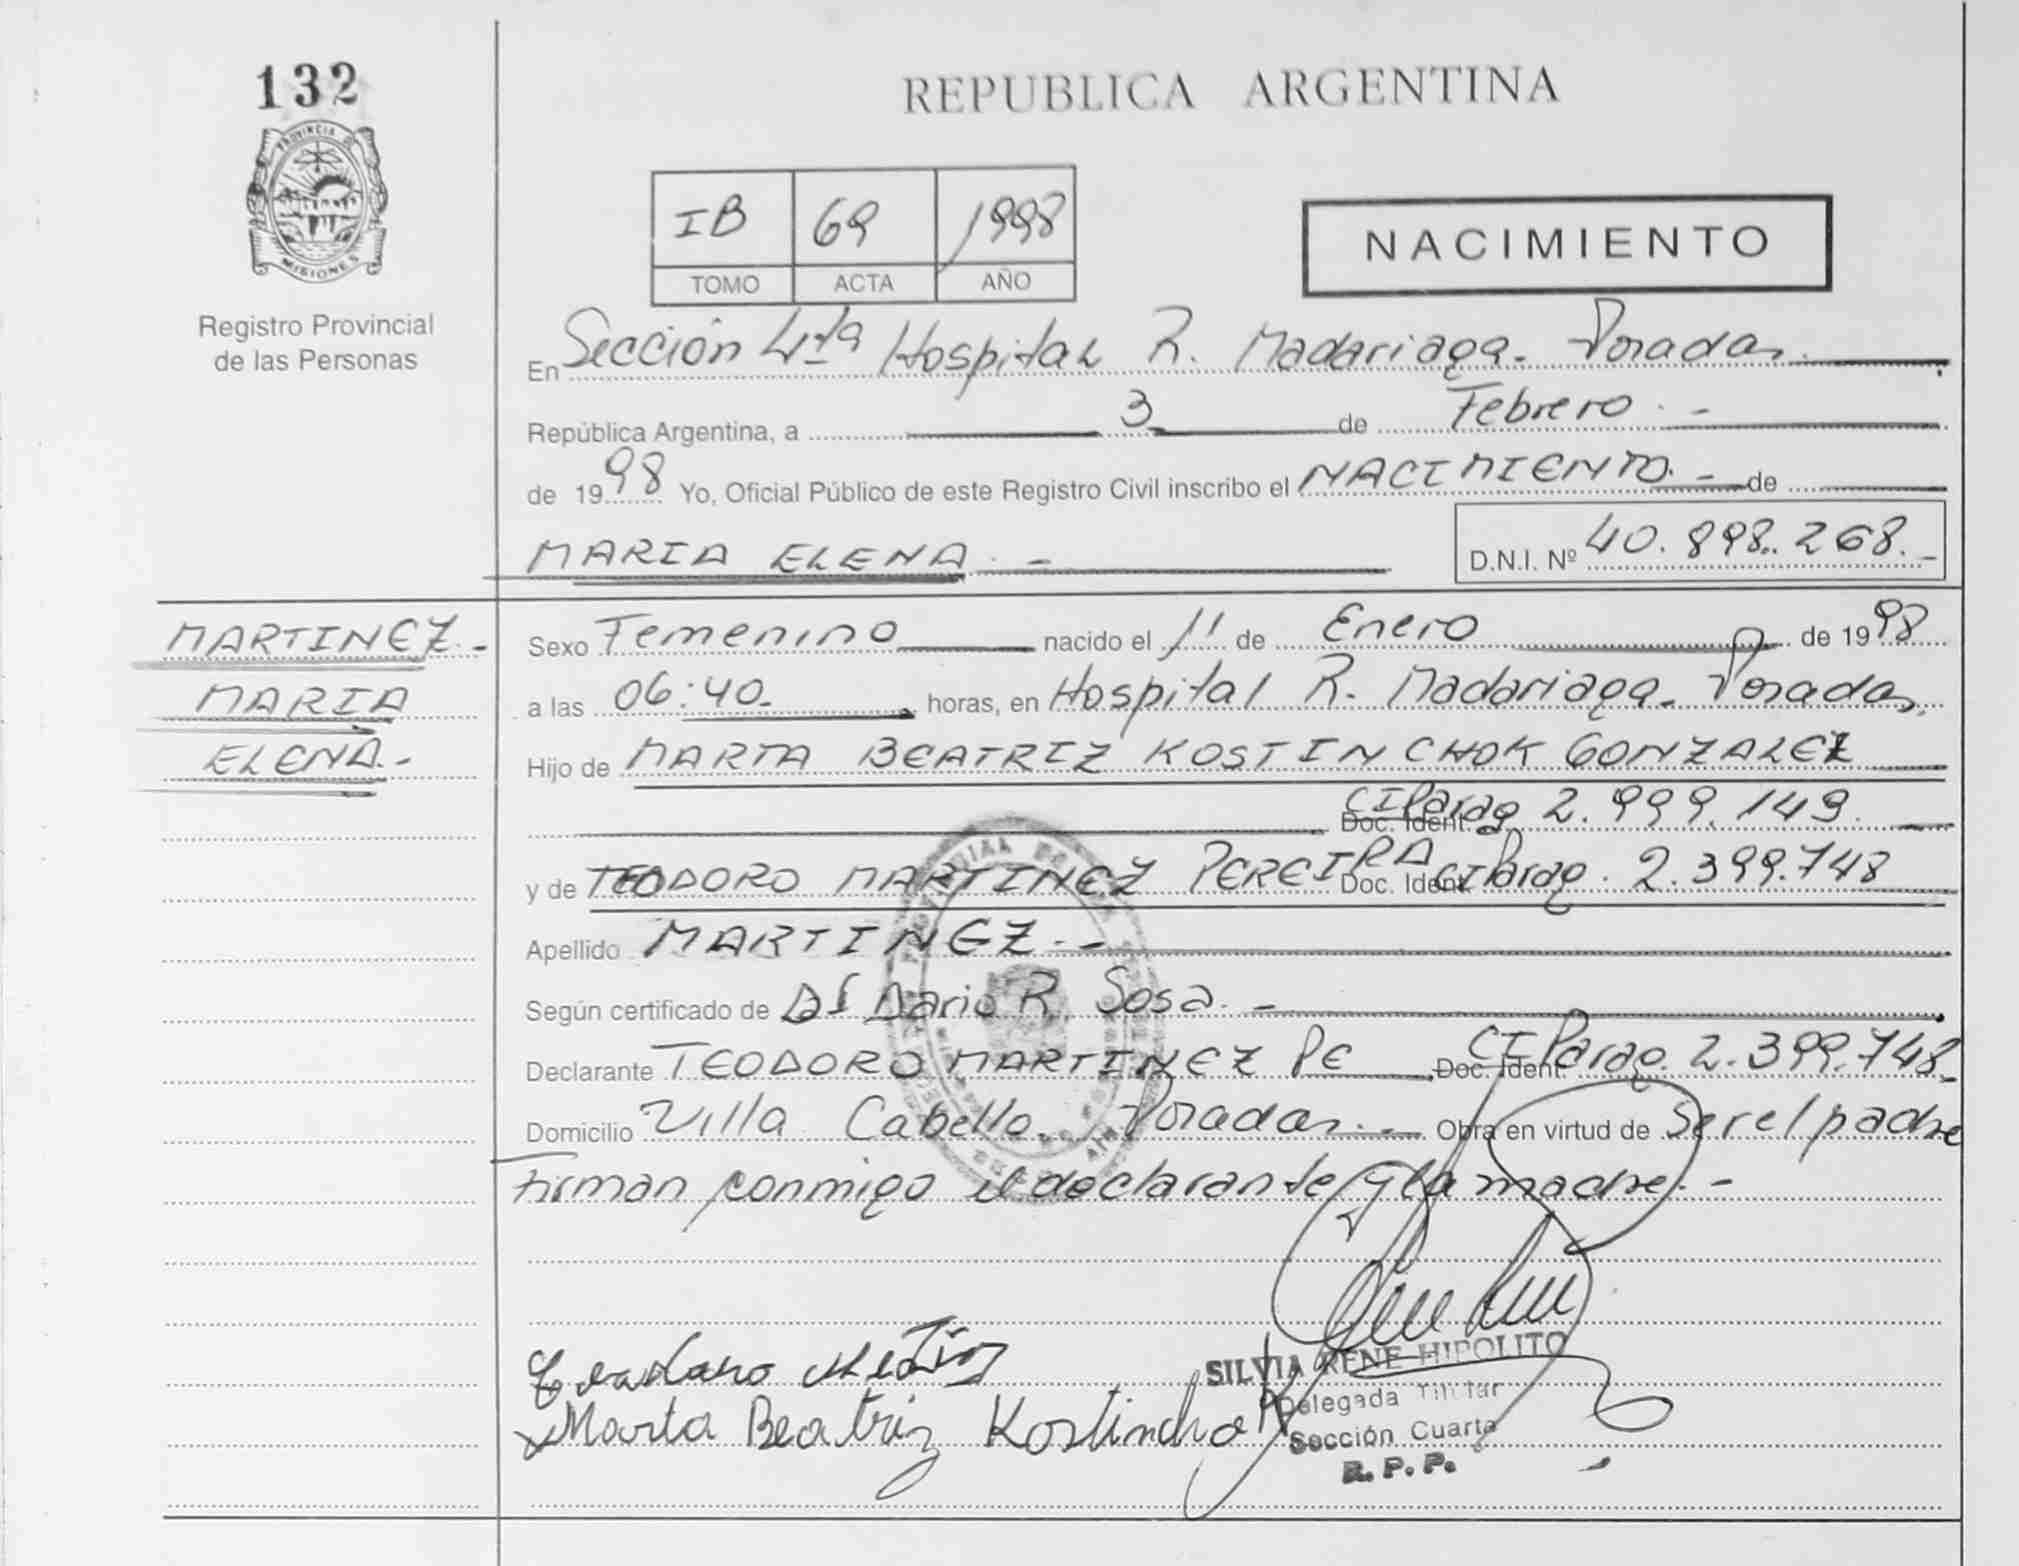 132
PROVINCIA DE
MISIONES
Registro Provincial
de las Personas
REPUBLICA ARGENTINA
IB 69 1998
TOMO ACTA AÑO
NACIMIENTO
En Sección 4ta Hospital R. Madariaga - Posadas.
República Argentina, a 3 de Febrero . -
de 1998 Yo, Oficial Público de este Registro Civil inscribo el NACIMIENTO. - de
MARIA ELENA . -
D.N.I. Nº 40.898.268. -
MARTINEZ. -
MARIA
ELENA. -
Sexo Femenino nacido el 11 de Enero de 1998
a las 06:40. horas, en Hospital R. Madariaga - Posadas.
Hijo de MARTA BEATRIZ KOSTINCHOK GONZALEZ
Doc. Ident. CI Parag 2.999.149.
y de TEODORO MARTINEZ PEREIRA Doc. Ident. CI Parag. 2.399.748
Apellido MARTINEZ. -
Según certificado de Dario R. Sosa. -
Declarante TEODORO MARTINEZ PE Doc. Ident. CI Parag. 2.399.748
Domicilio Villa Cabello. Posadas. - Obra en virtud de Ser el padre
firman conmigo el declarante y la madre. -
Marta Beatriz Kostinchok
SILVIA RENE HIPOLITO
Delegada Titular
Sección Cuarta
R. P. P.